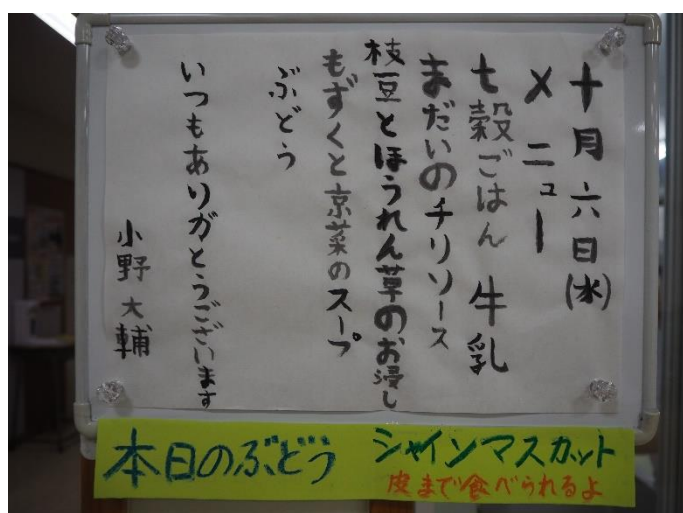 十月六日(水)
メニュー
七穀ごはん 牛乳
まだいのチリソース
枝豆とほうれん草のお浸し
もずくと京菜のスープ
ぶどう
いつもありがとうございます
小野大輔
本日のぶどう シャインマスカット
皮まで食べられるよ